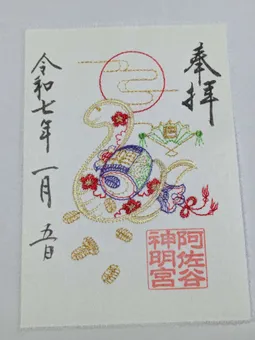 奉拝
令和七年 一月 五日
阿佐谷
神明宮